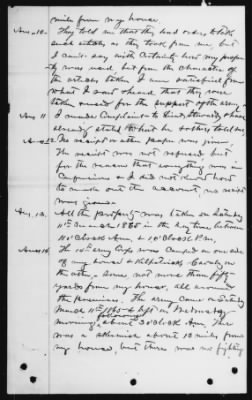 mile from my house.
Ans. 10. They told me that they had orders to take
such articles as they took from me, but
I can't say with certainty how my proper-
ty was used but from the character of
the articles taken I am satisfied from
what I saw & heard that they were
taken & used for the support of the army.
Ans 11 I made Complaint to have
already stated to
Ans 12 No receipt or other paper was given.
The receipt was not refused but
for the reason that everything was in
Confusion & I did not know how
to make out the account, no receipt
was given.
Ans. 13. All the property was taken on Saturday
11th March 1865 in the day time between
10 O'clock A.m. & 10 O'clock P.m.
Ans 14 The 15th army Corps was camped on one side
of my house & Kilpatrick's Cavalry on
the other, some not more than fifty
yards from my house, all around
the premises. The army came on Saturday
March 11th 1865 & left on Wednesday
morning following about 3 O'clock A.m. There
was a skirmish about 10 miles from
my house, but there was no fighting